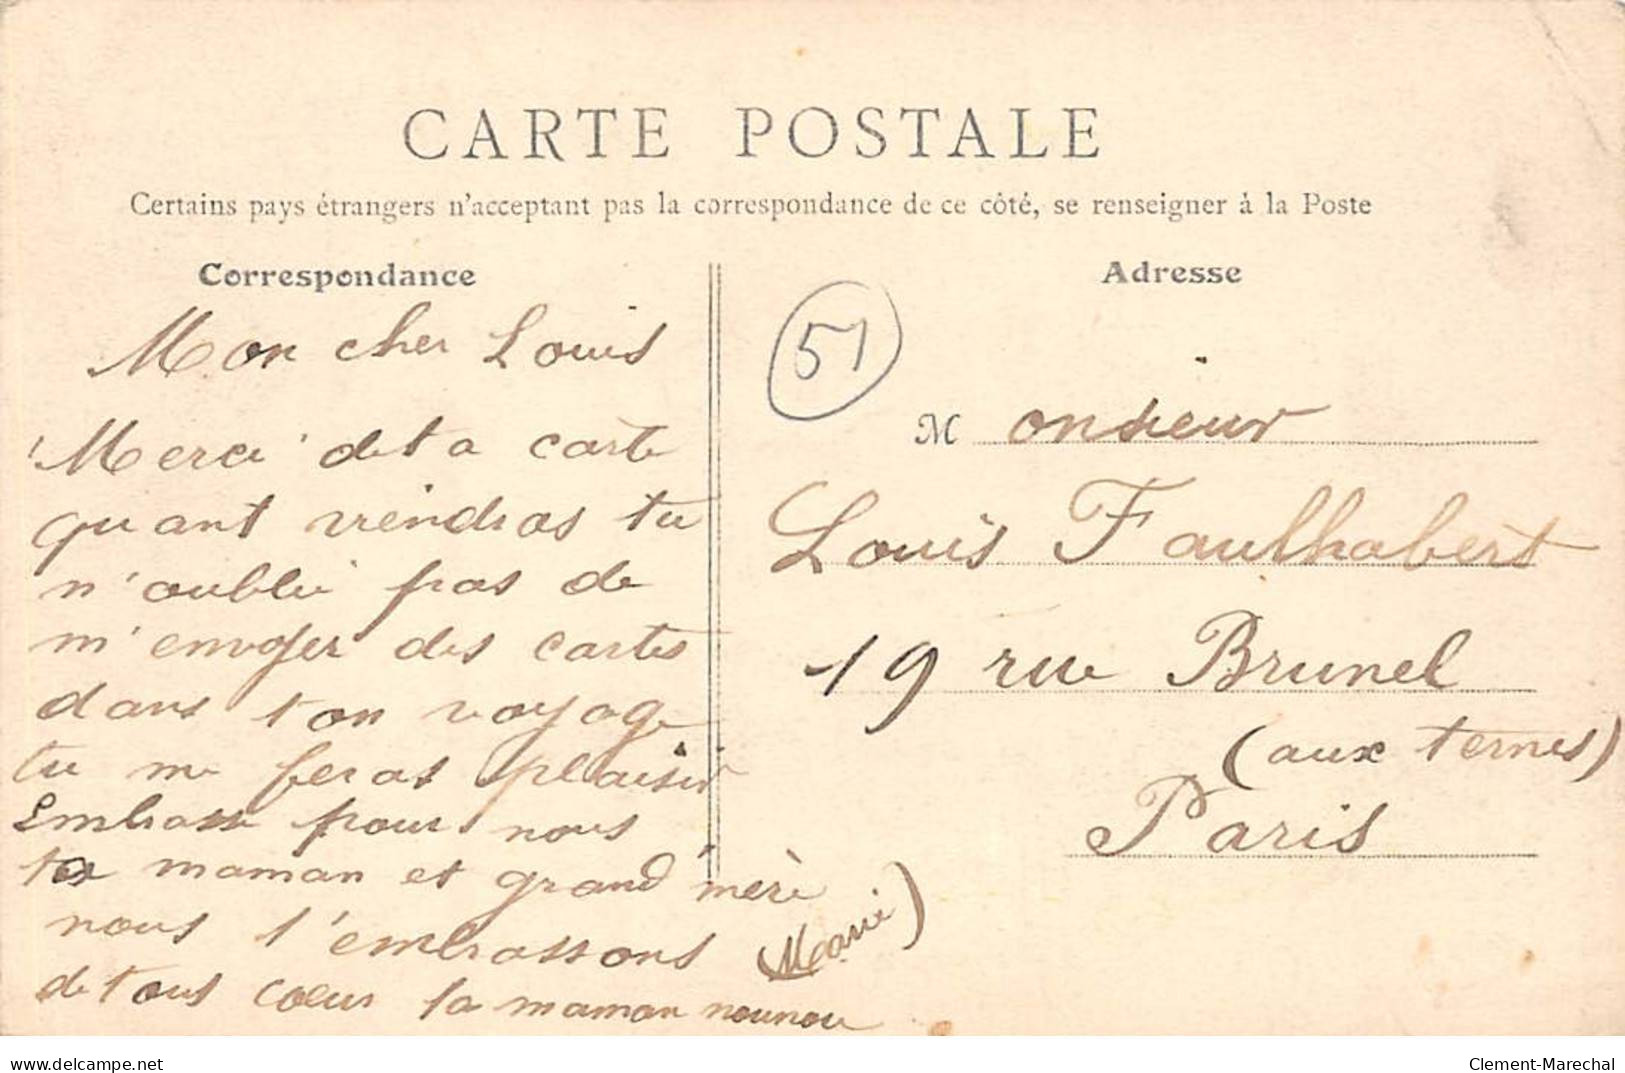 CARTE POSTALE
Certains pays étrangers n'acceptent pas la correspondance de ce côté, se renseigner à la Poste
Correspondance
Mon cher Louis
Merci de ta carte
quant viendras tu
n'oublie pas de
m'envoyer des cartes
dans ton voyage
tu me feras plaisir
Embrasse pour nous
ta maman et grand'mère
nous t'embrassons
de tous coeur ta maman nounou
(Marie)
51
Adresse
Monsieur
Louis Faulhabert
19 rue Brunel
(aux ternes)
Paris
delcampe.net
Clement-Marechal